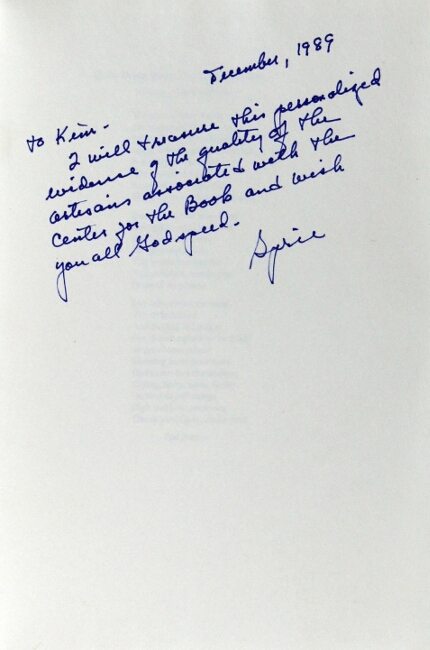 December, 1989
To Kim-
I will treasure this personalized
evidence of the quality of the
artesans associated with the
Center for the Book and wish
you all Godspeed.
Syrie